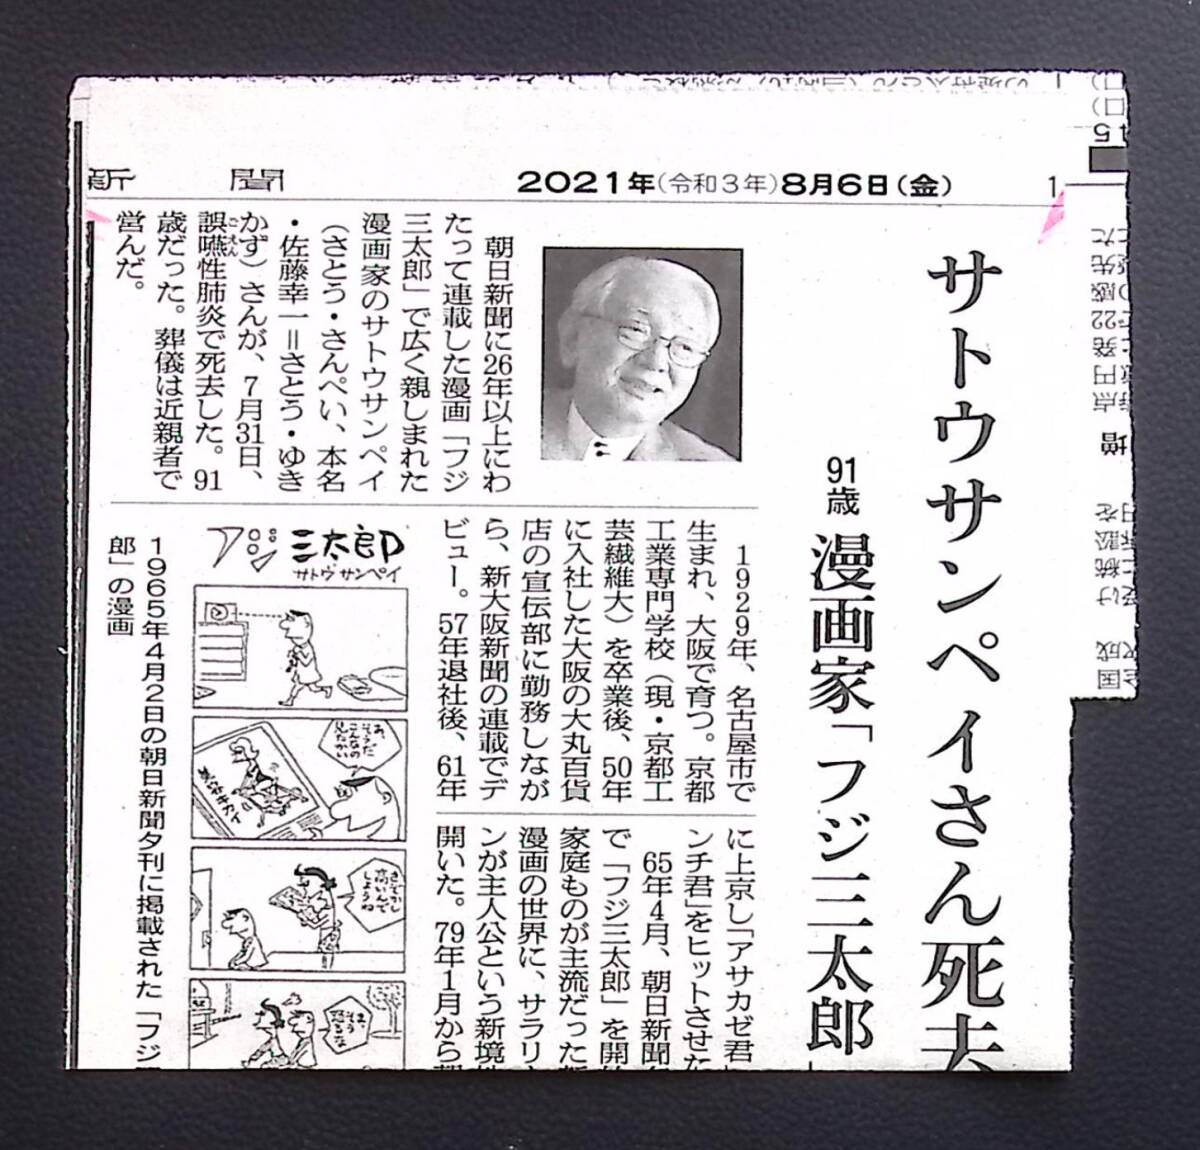 新聞
2021年(令和3年)8月6日(金)
1
サトウサンペイさん死去
91歳 漫画家「フジ三太郎
朝日新聞に26年以上にわ
たって連載した漫画「フジ
三太郎」で広く親しまれた
漫画家のサトウサンペイ
(さとう・さんぺい、本名
・佐藤幸一=さとう・ゆき
かず)さんが、7月31日、
誤嚥性肺炎で死去した。91
ごえん
歳だった。葬儀は近親者で
営んだ。
1929年、名古屋市で
生まれ、大阪で育つ。京都
工業専門学校(現・京都工
芸繊維大)を卒業後、50年
に入社した大阪の大丸百貨
店の宣伝部に勤務しなが
ら、新大阪新聞の連載でデ
ビュー。57年退社後、61年
に上京し「アサカゼ君」
ンチ君」をヒットさせた
65年4月、朝日新聞
で「フジ三太郎」を開
家庭ものが主流だった
漫画の世界に、サラリ
ンが主人公という新境
開いた。79年1月から
フジ三太郎
サトウサンペイ
あ、
そうだ
こんなの
見たかい
さぞかし
高いんで
しょうね
1965年4月2日の朝日新聞夕刊に掲載された「フジ三太
郎」の漫画